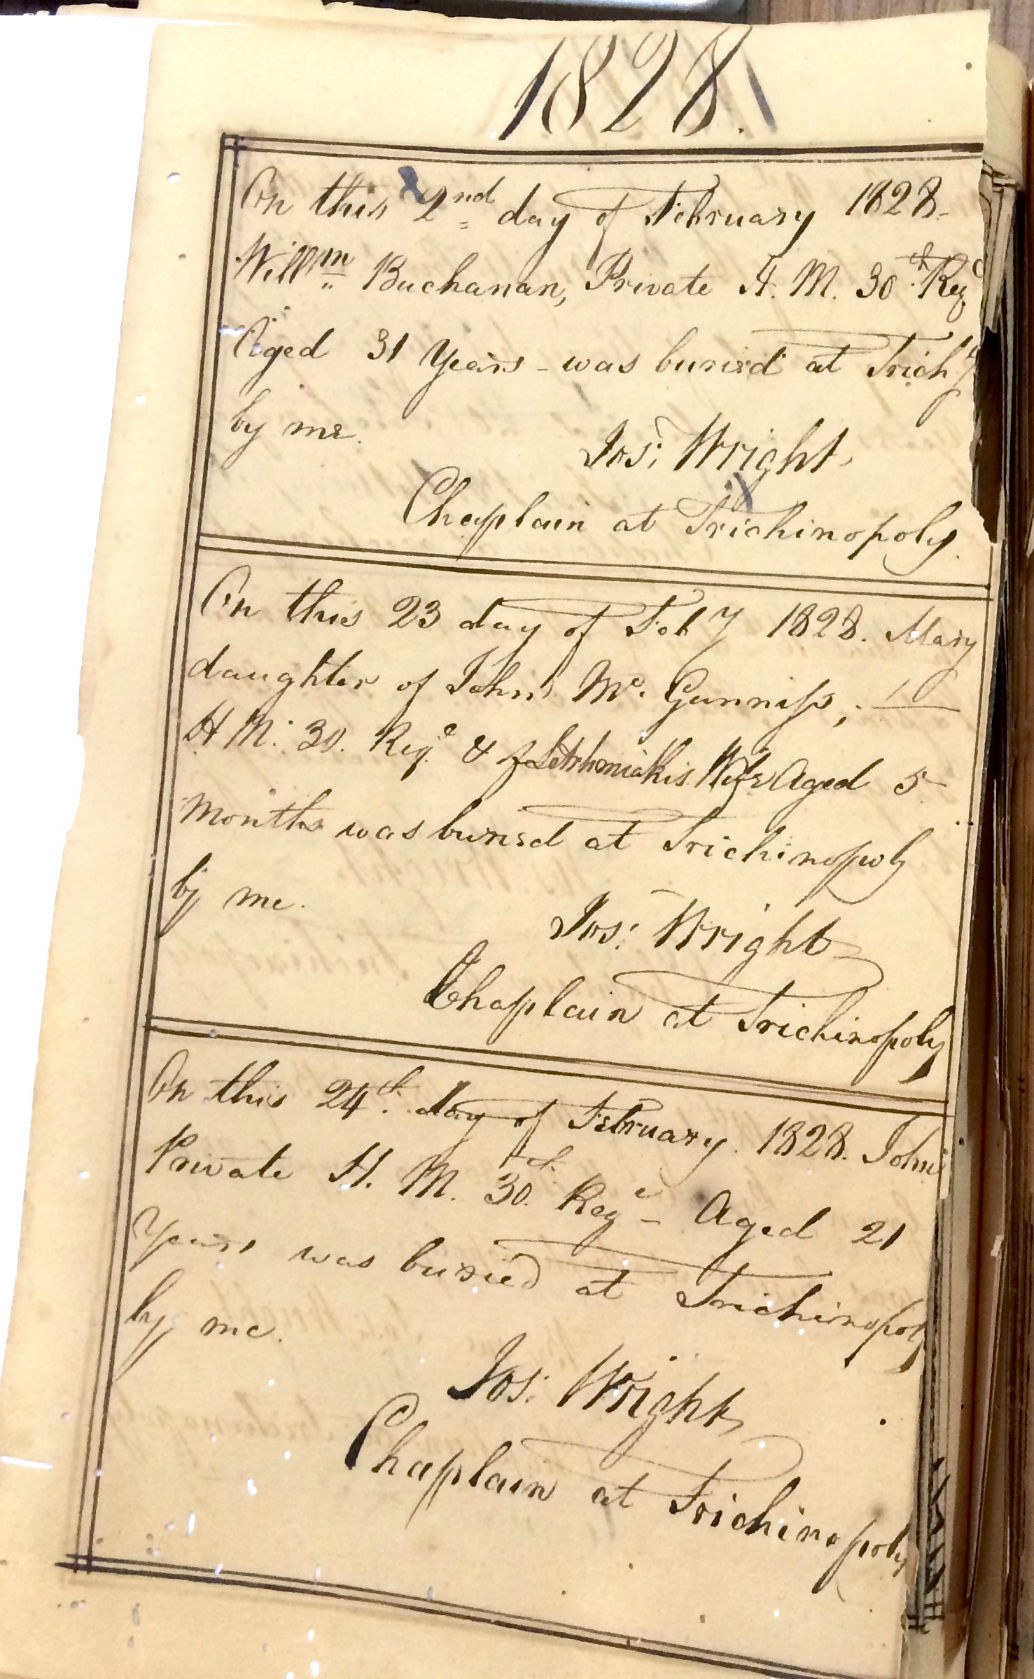 1828.
On this 2nd day of February 1828-
Willm Buchanan, Private H. M. 30th Regt
Aged 31 Years - was buried at Trichy
by me.
Jos: Wright,
Chaplain at Trichinopoly.
On this 23 day of Feby 1828. Mary
daughter of John Mc. Ganniss,
H M. 30. Regt & of his Wife Aged 5
Months was buried at Trichinopoly
by me.
Jos: Wright
Chaplain at Trichinopoly
On this 24th. day of February. 1828. John
Private H. M. 30th. Regt - Aged 21
Years was buried at Trichinopoly
by me.
Jos: Wright,
Chaplain at Trichinopoly